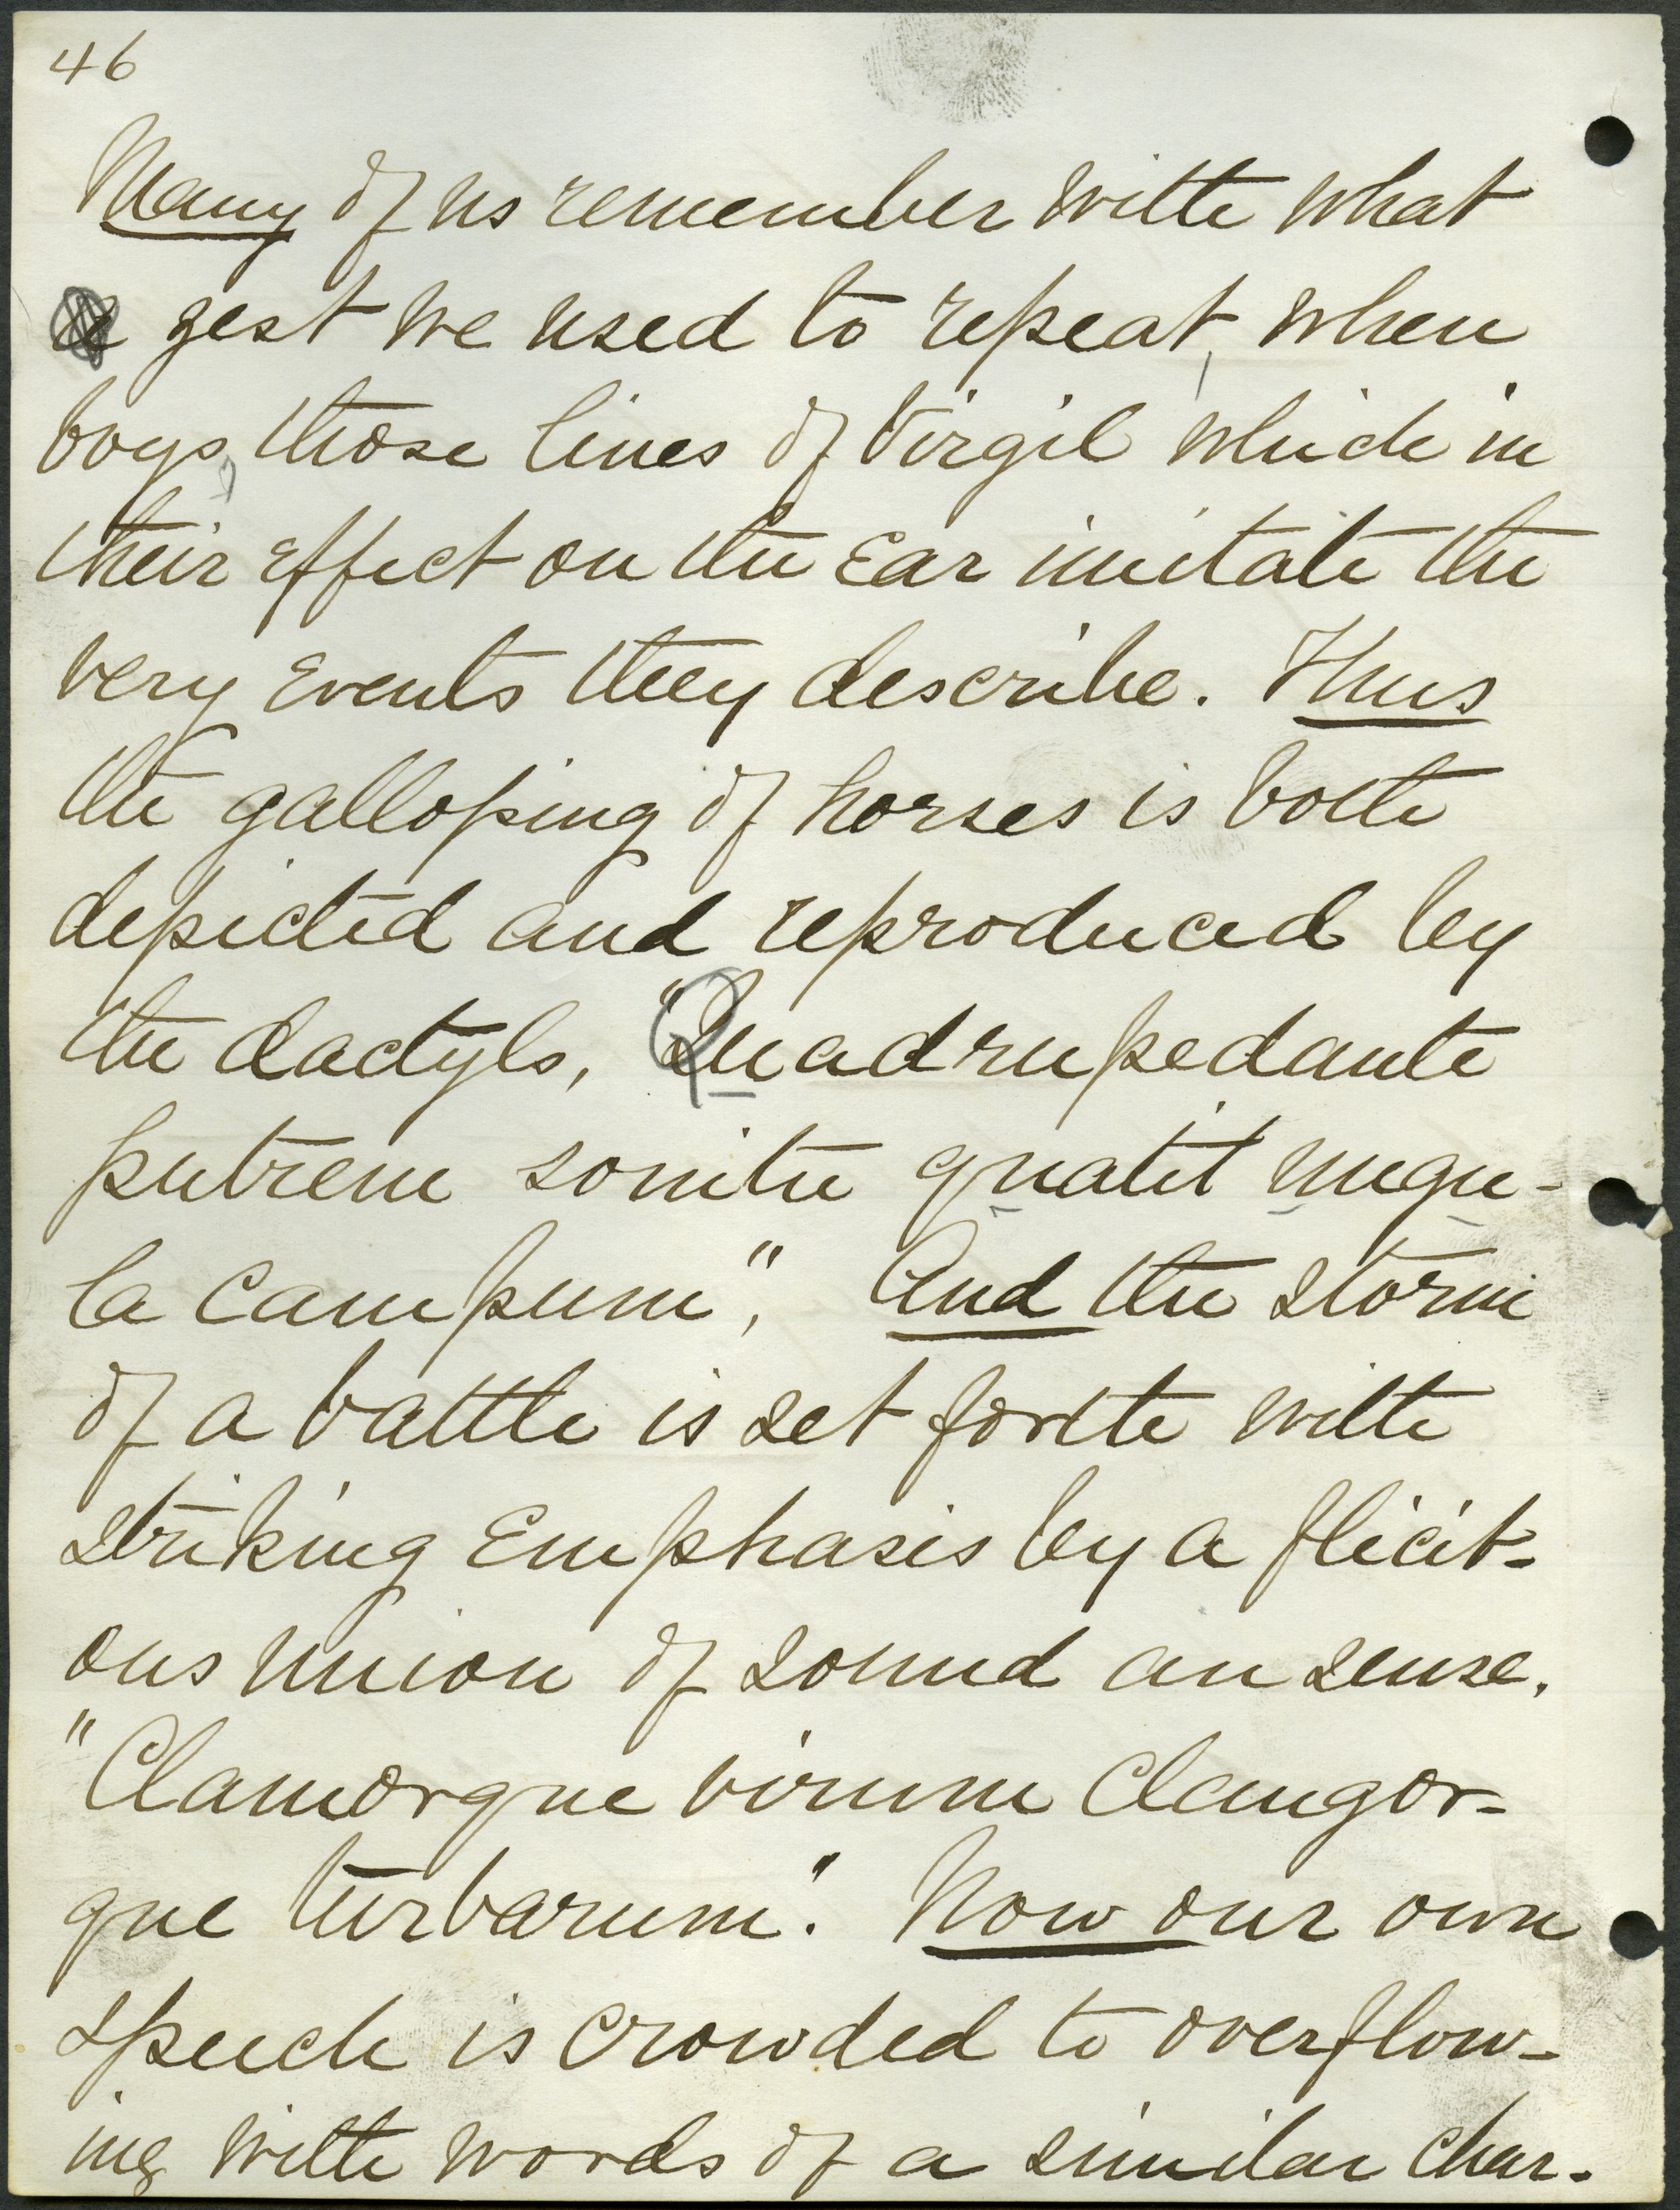 46
Many of us remember with what
zest we used to repeat, when
boys, those lines of Virgil which in
their effect on the ear imitate the
very events they describe. Thus
the galloping of horses is both
depicted and reproduced by
the dactyls, "Quadrupedante
putrem sonitu quatit ungu-
la campum", And the storm
of a battle is set forth with
striking emphasis by a flicit-
ous union of sound an sense.
"Clamorque virum clangor-
que turbarum". Now our own
speech is crowded to overflow-
ing with words of a similar char-